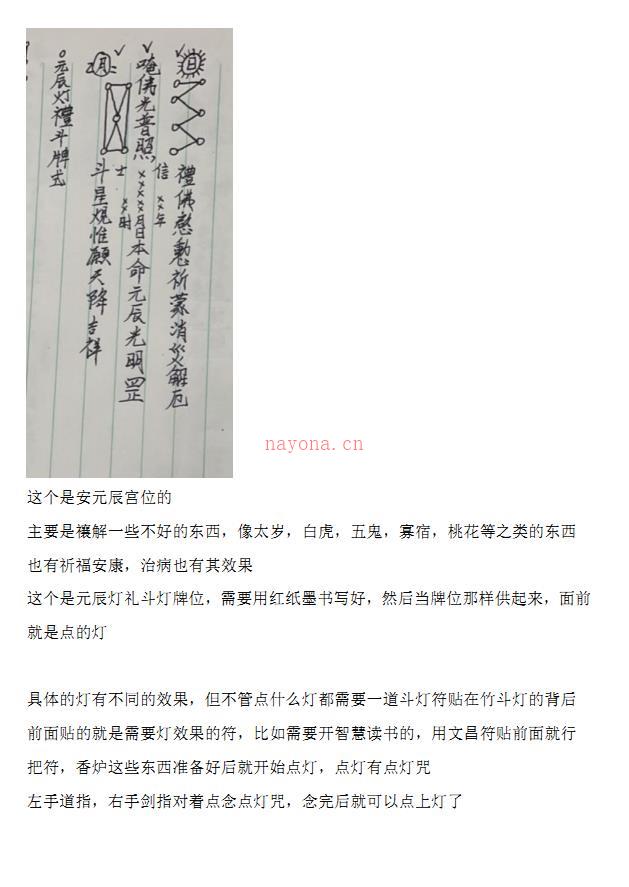 日
禮佛愍懃祈蒙消災解厄
唵佛光普照
信
士
××年
××月
××日
××时
本命元辰光明罡
月
斗星煌惟願天降吉祥
元辰灯禮斗牌式
nayona.cn
这个是安元辰宫位的
主要是禳解一些不好的东西，像太岁，白虎，五鬼，寡宿，桃花等之类的东西
也有祈福安康，治病也有其效果
这个是元辰灯礼斗灯牌位，需要用红纸墨书写好，然后当牌位那样供起来，面前
就是点的灯
具体的灯有不同的效果，但不管点什么灯都需要一道斗灯符贴在竹斗灯的背后
前面贴的就是需要灯效果的符，比如需要开智慧读书的，用文昌符贴前面就行
把符，香炉这些东西准备好后就开始点灯，点灯有点灯咒
左手道指，右手剑指对着点念点灯咒，念完后就可以点上灯了